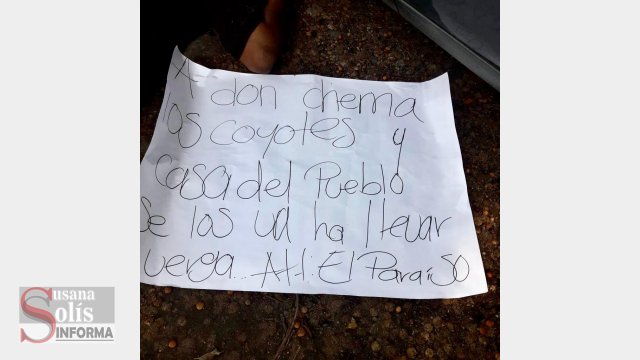 A don chema
los coyotes y
casa del Pueblo
se los va ha llevar
verga... Att: El Paraíso
Susana
Solís
INFORMA